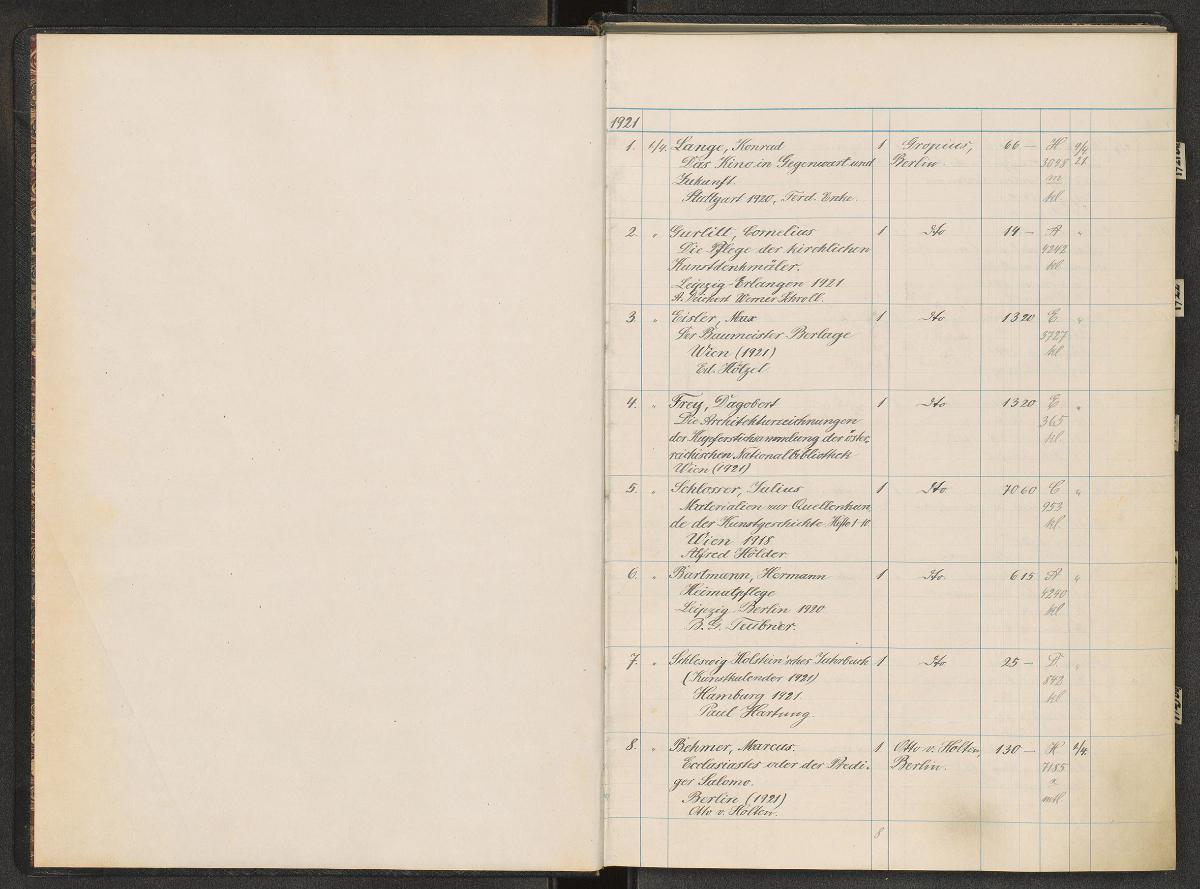 1921
1. 1/4. Lange, Konrad 1 Gropius, 66 — H 9/4
Das Kino in Gegenwart und Berlin. 3098 21.
Zukunft. m
Stuttgart 1920, Ferd. Enke. kl.
2. " Gurlitt, Cornelius 1 dto 14 — A "
Die Pflege der kirchlichen 4242
Kunstdenkmäler. kl.
Leipzig-Erlangen 1921
A. Deichert Werner Scholl.
3. " Eisler, Max 1 dto 13 20 E "
Der Baumeister Berlage 5727
Wien (1921) kl.
Ed. Hölzel
4. " Frey, Dagobert 1 dto 13 20 E "
Die Architekturzeichnungen 365
der Kupferstichsammlung der öster, kl.
reichischen Nationalbibliothek
Wien (1921)
5. " Schlosser, Julius 1 dto 70 60 C "
Materialien zur Quellenkun 953
de der Kunstgeschichte Hefte 1-10 kl.
Wien 1918
Alfred Hölder.
6. " Bartmann, Hermann 1 dto 6 15 A "
Heimatpflege 4240
Leipzig-Berlin 1920 kl.
B. G. Teubner.
7. " Schleswig-Holstein'sches Jahrbuch 1 dto 25 — "
(Kunstkalender 1921) 842
Hamburg 1921. kl
Paul Hartung.
8. " Behmer, Marcus. 1 Otto v. Holten, 130 — H
Ecclesiastes oder der Predi- Berlin. 7185
ger Salomo.
Berlin (1921) mtl.
Otto v. Holten.
8
1722